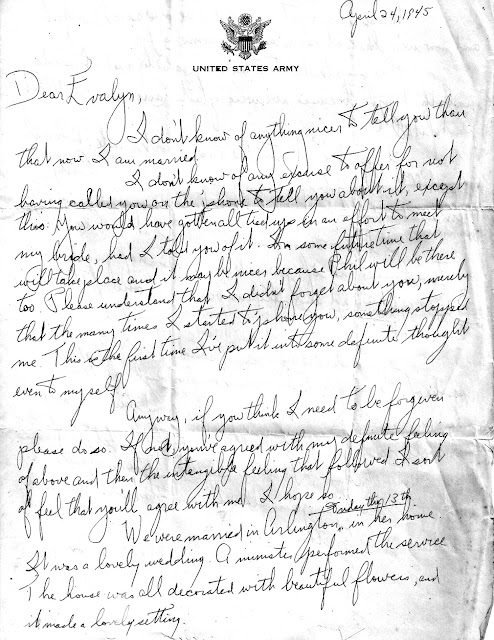 April 24, 1945
UNITED STATES ARMY
Dear Evalyn,
I don't know of anything nicer to tell you than
that now I am married.
I don't know of any excuse to offer for not
having called you on the 'phone to tell you about it, except
this: You would have gotten all tied up in an effort to meet
my bride, had I told you of it. In some future time that
will take place and it may be nicer because Phil will be there
too. Please understand that I didn't forget about you, merely
that the many times I started to 'phone you, something stopped
me. This is the first time I've put it into some definite thought
even to myself.
Anyway, if you think I need to be forgiven
please do so. If not, you've agreed with my definite feeling
of above and then the intangible feeling that followed. I sort
of feel that you'll agree with me. I hope so.
Friday the 13th
We were married in Arlington, in her home.
It was a lovely wedding. A minister performed the service
The house was all decorated with beautiful flowers, and
it made a lovely setting.